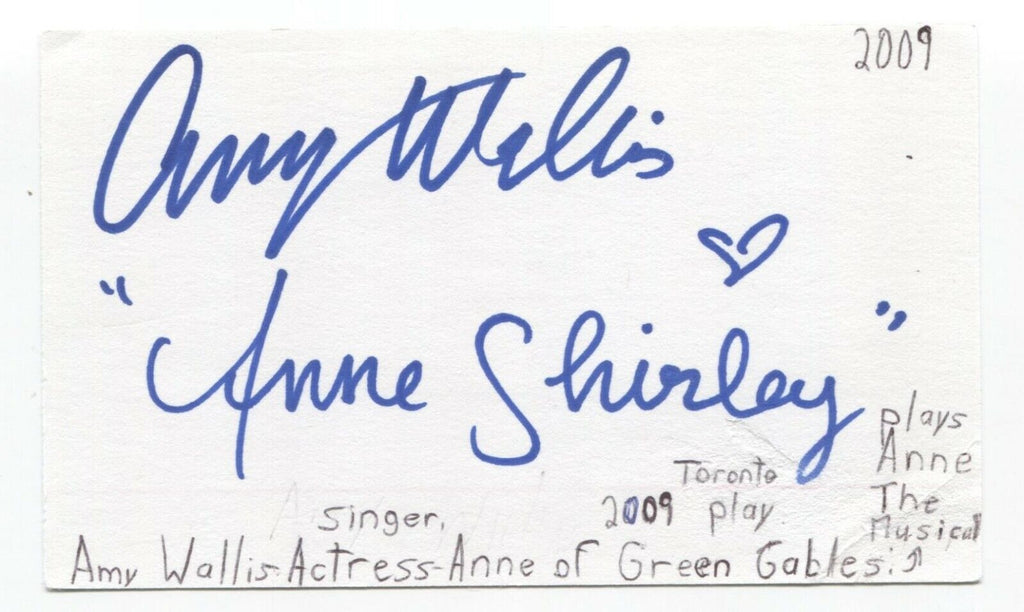 2009
Amy Wallis
"Anne Shirley"
plays
Anne
The
Musical
Toronto
2009 play
singer,
Amy Wallis-Actress-Anne of Green Gables: